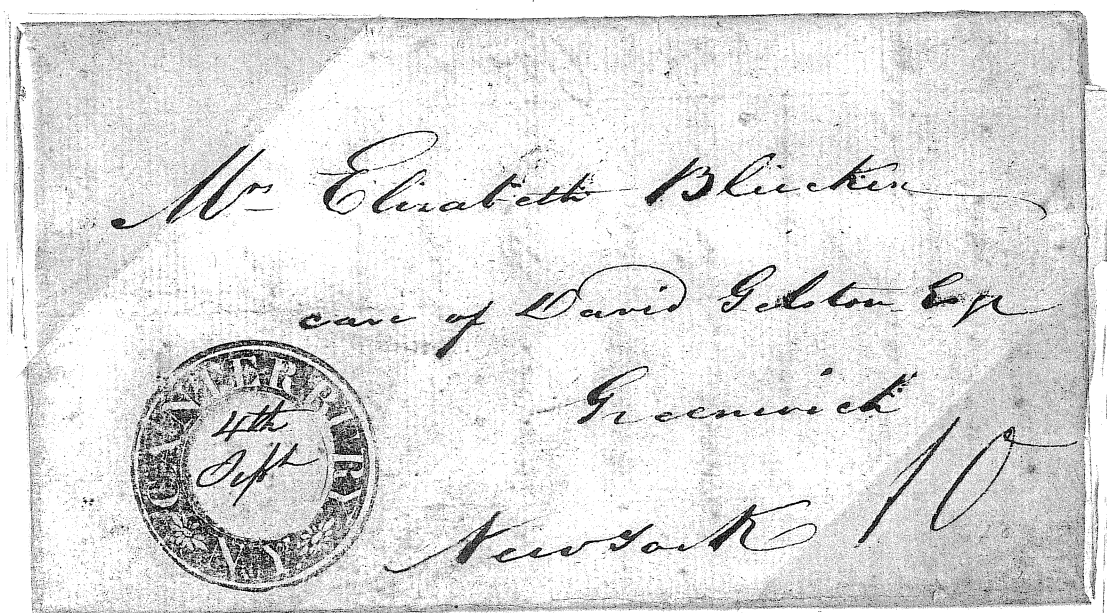 Mrs Elizabeth Bleecker
care of David Gelston Esqr
Greenwich
New York
10
CANTERBURY
4th
Sept
NY